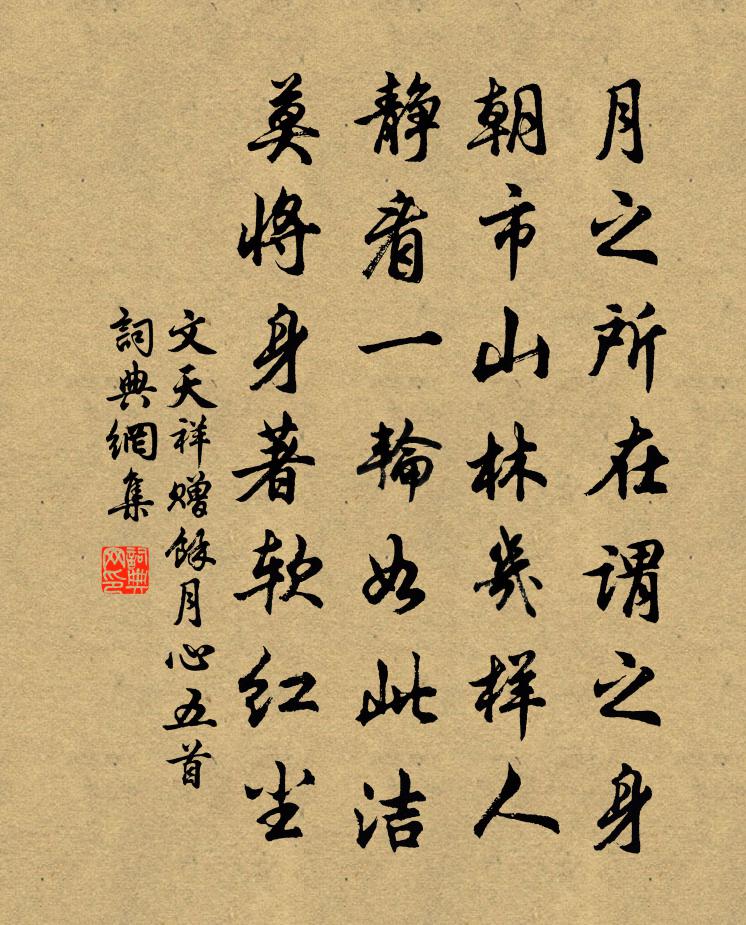 月之所在谓之身
朝市山林几样人
静看一轮如此洁
莫将身著软红尘
文天祥赠馀月心五首
詞典網集
詞典网印